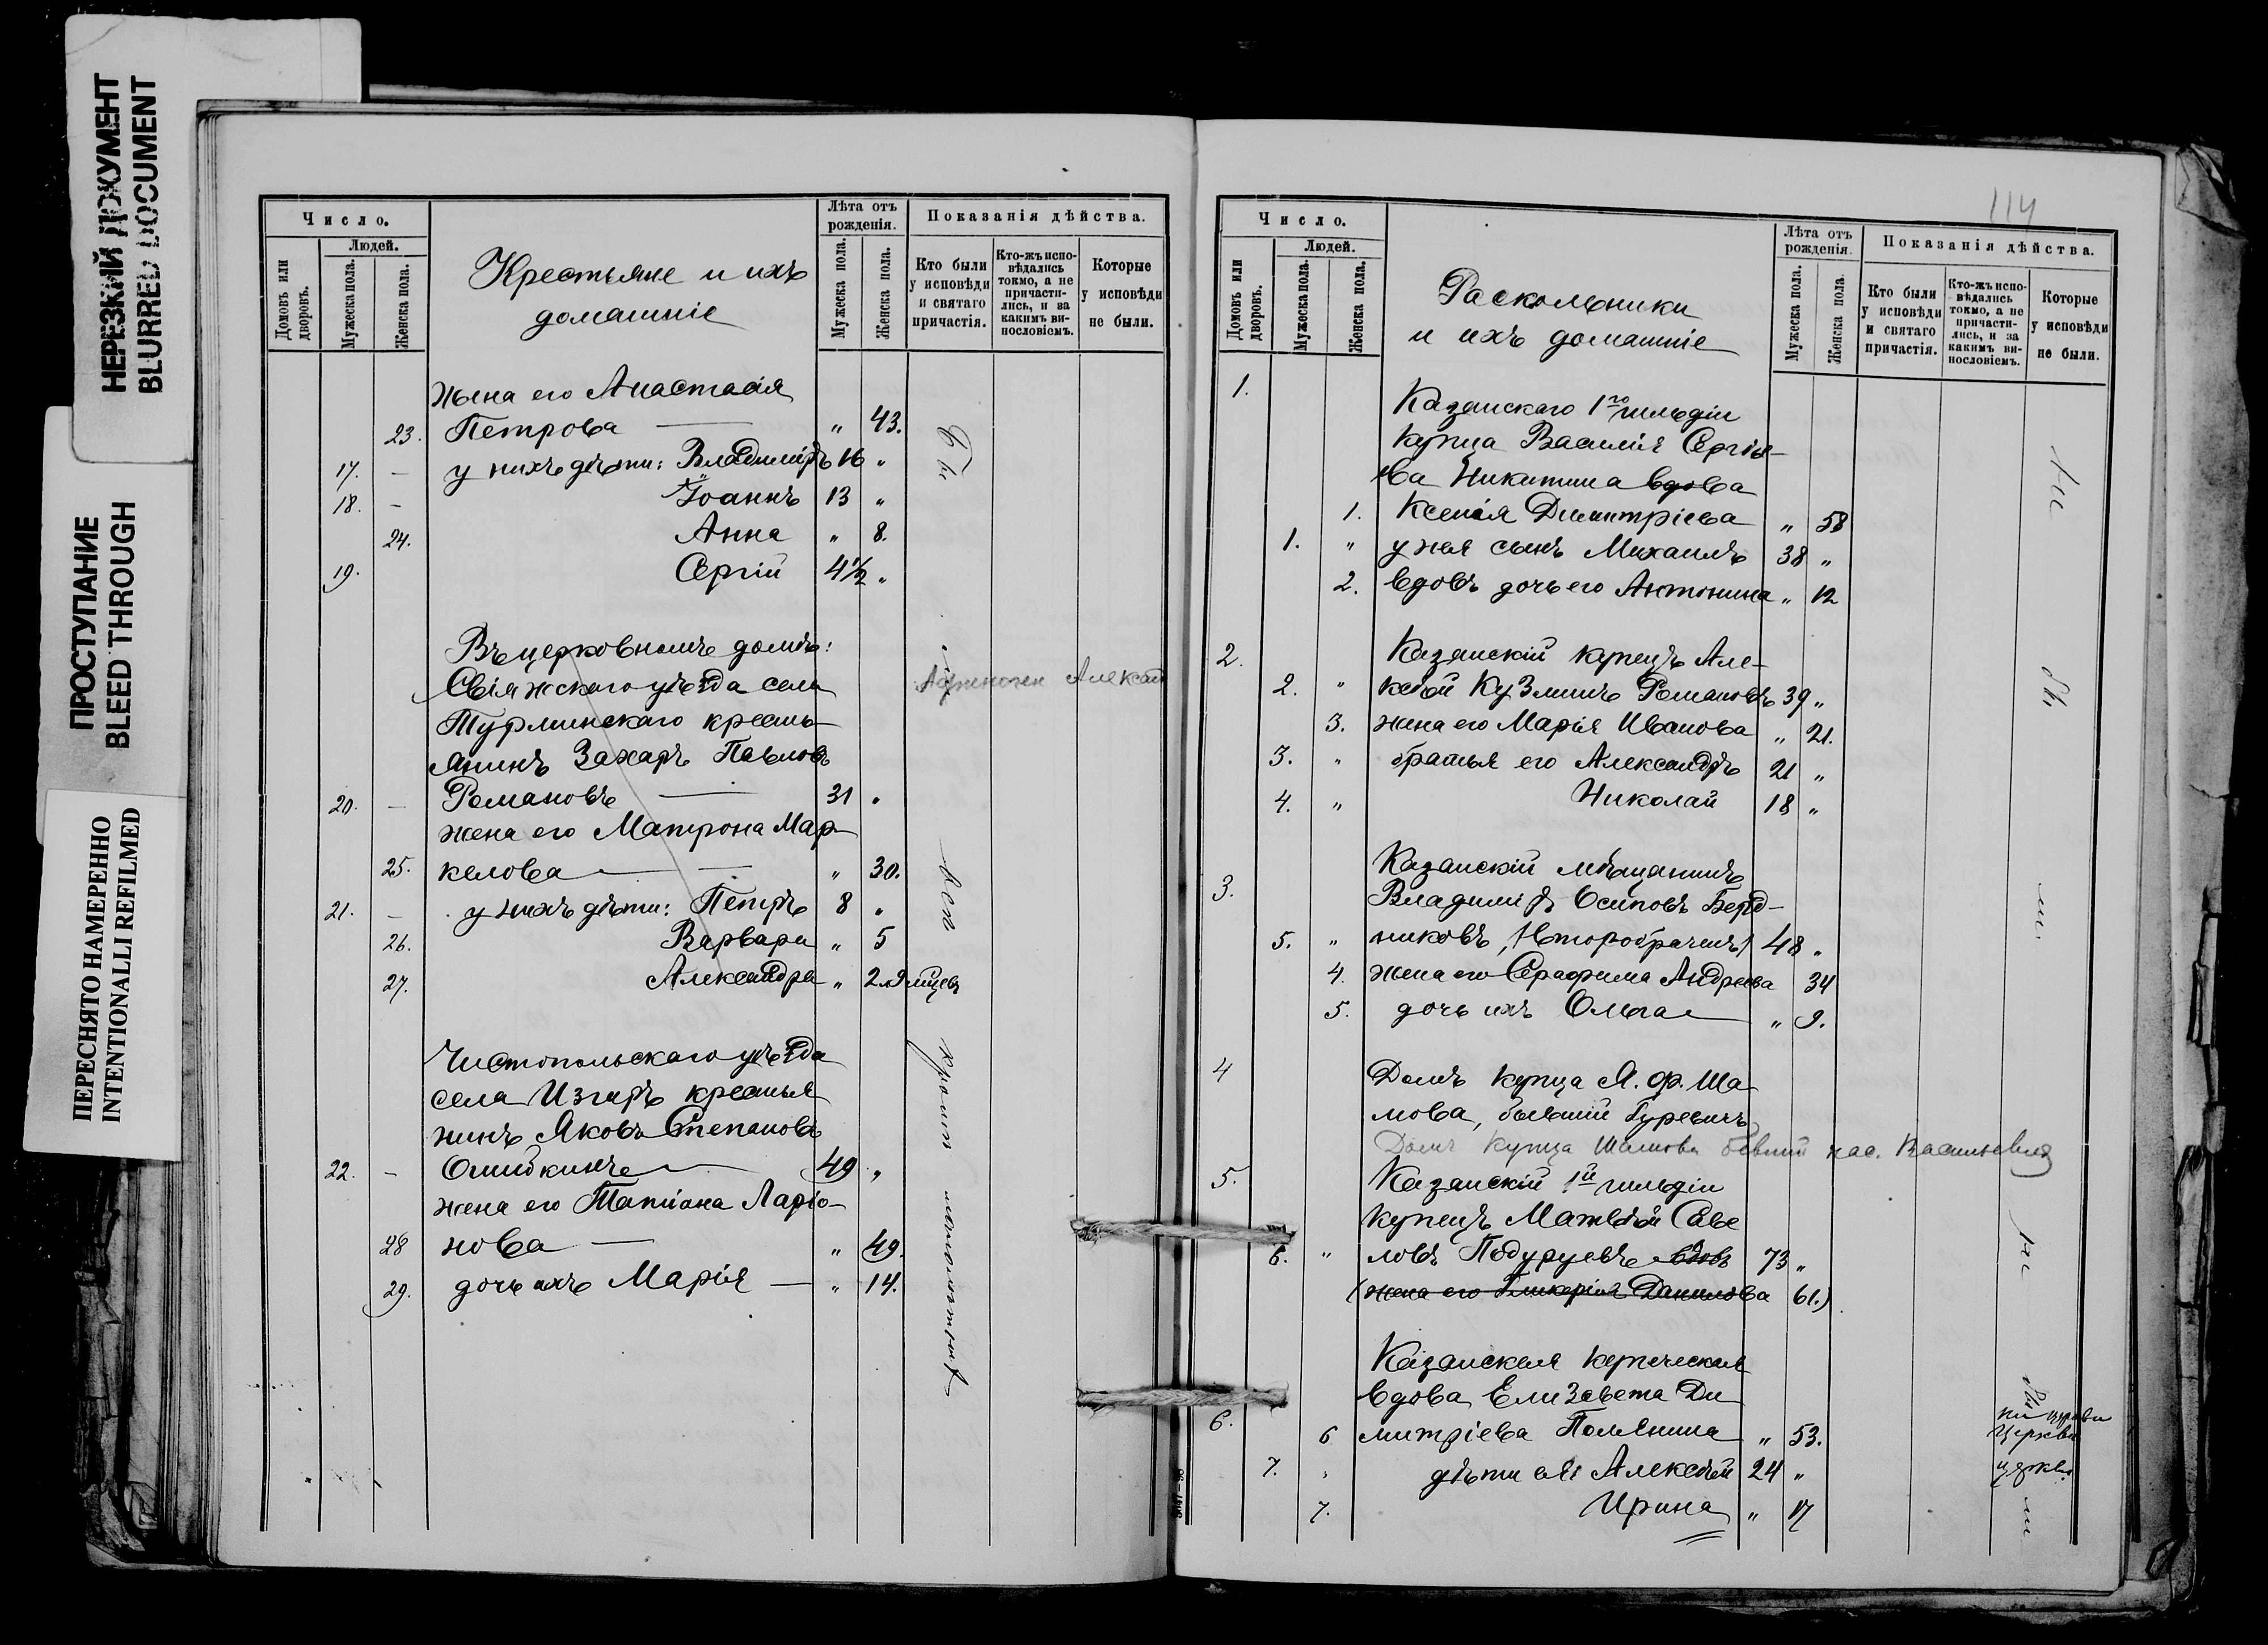 НЕРЕЗКИЙ ДОКУМЕНТ
BLURRED DOCUMENT
ПРОСТУПАНИЕ
BLEED THROUGH
ПЕРЕСНЯТО НАМЕРЕННО
INTENTIONALLI REFILMED
Число.
Людей.
Домовъ или дворовъ.
Мужеска пола.
Женска пола.
Крестьяне и ихъ
домашніе
Лѣта отъ рожденія.
Мужеска пола.
Женска пола.
Показанія дѣйства.
Кто были у исповѣди и святаго причастія.
Кто-жъ испо-вѣдались токмо, а не причасти-лись, и за какимъ ви-нословіемъ.
Которые у исповѣди не были.
жена его Анастасія
23. Петрова — „ 43.
17. – у нихъ дѣти: Владиміръ 16 „
18. – Іоаннъ 13 „
24. Анна „ 8.
19. Сергій 4½ „
Въ церковномъ домѣ:
Свіяжскаго уѣзда села
Турминскаго кресть-
янинъ Захаръ Павловъ
20. – Романовъ — 31 „
жена его Матрона Мар-
25. келова — „ 30.
21. – у нихъ дѣти: Петръ 8 „
26. Варвара „ 5
27. Александра „ 2 л 9 мѣцевъ
Чистопольскаго уѣзда
села Изгаръ крестья
нинъ Яковъ Степановъ
22. – Ошибкинъ — 49 „
жена его Татіана Ларіо-
28 нова — „ 49.
29. дочь ихъ Марія — „ 14.
114
Число.
Людей.
Домовъ или дворовъ.
Мужеска пола.
Женска пола.
Раскольники
и ихъ домашніе
Лѣта отъ рожденія.
Мужеска пола.
Женска пола.
Показанія дѣйства.
Кто были у исповѣди и святаго причастія.
Кто-жъ испо-вѣдались токмо, а не причасти-лись, и за какимъ ви-нословіемъ.
Которые у исповѣди не были.
1. Казанскаго 1го гильдіи
купца Василія Сергіе-
ва Никитина вдова
1. Ксенія Димитріева „ 58
1. „ у нея сынъ Михаилъ 38 „
2. вдовъ дочь его Антонина „ 12
2. Казанскій купецъ Але-
2. „ ксѣй Кузминъ Романовъ 39 „
3. жена его Марія Иванова „ 21.
3. „ братья его Александръ 21 „
4. „ Николай 18 „
Казанскій мѣщанинъ
3. Владиміръ Осиповъ Берд-
5. „ никовъ, (Второбрачен.) 48 „
4. жена его Серафима Андреева 34
5. дочь ихъ Ольга „ 9.
4 Домъ купца Я. Ф. Ша
мова, бывшій Гуревичъ
Домъ купца Шамова бывший нас. Васильевыхъ
5. Казанскій 1й гильдіи
купецъ Матвѣй Саве
6. „ ловъ Подуруевъ вдовъ 73 „
(жена его Гликерія Данилова 61.)
Казанская купеческая
вдова Елизавета Ди
6. 6 митріева „ 53.
7. „ дѣти ея: Алексѣй 24 „
7. Ирина „ 17
церкви